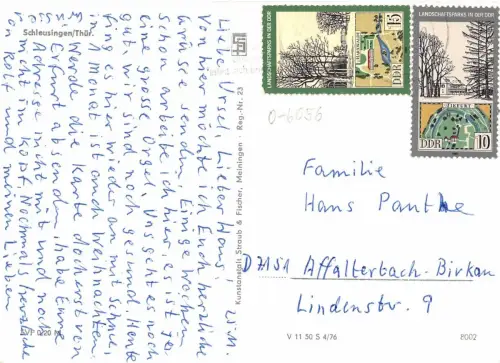 Schleusingen/Thür.
25.11.
Liebe Ursel, Lieber Hans!
Von hier möchte ich Euch herzliche
Grüsse senden. Einige Wochen
schon arbeite ich hier, es ist
eine grosse Orgel. Uns geht es noch
gut wir sind noch gesund. Heute
fing es hier wieder an mit Schnei,
in 1 Monat ist auch Weihnachten.
Werde die Karte doch erst von
Erfurt absenden, habe Eure
Adresse nicht mit und noch
nicht im Kopf. Nochmals herzliche
von Rolf und meinen Lieben
AVP 0,20 M
Kunstanstalt Straub & Fischer, Meiningen · Reg.-Nr. 23
LANDSCHAFTSPARKS IN DER DDR
15
DDR
LANDSCHAFTSPARKS IN DER DDR
TIEFURT
DDR 10
0-6056
Familie
Hans Panthe
D7151 Affalterbach-Birkau
Lindenstr. 9
V 11 50 S 4/76
8002